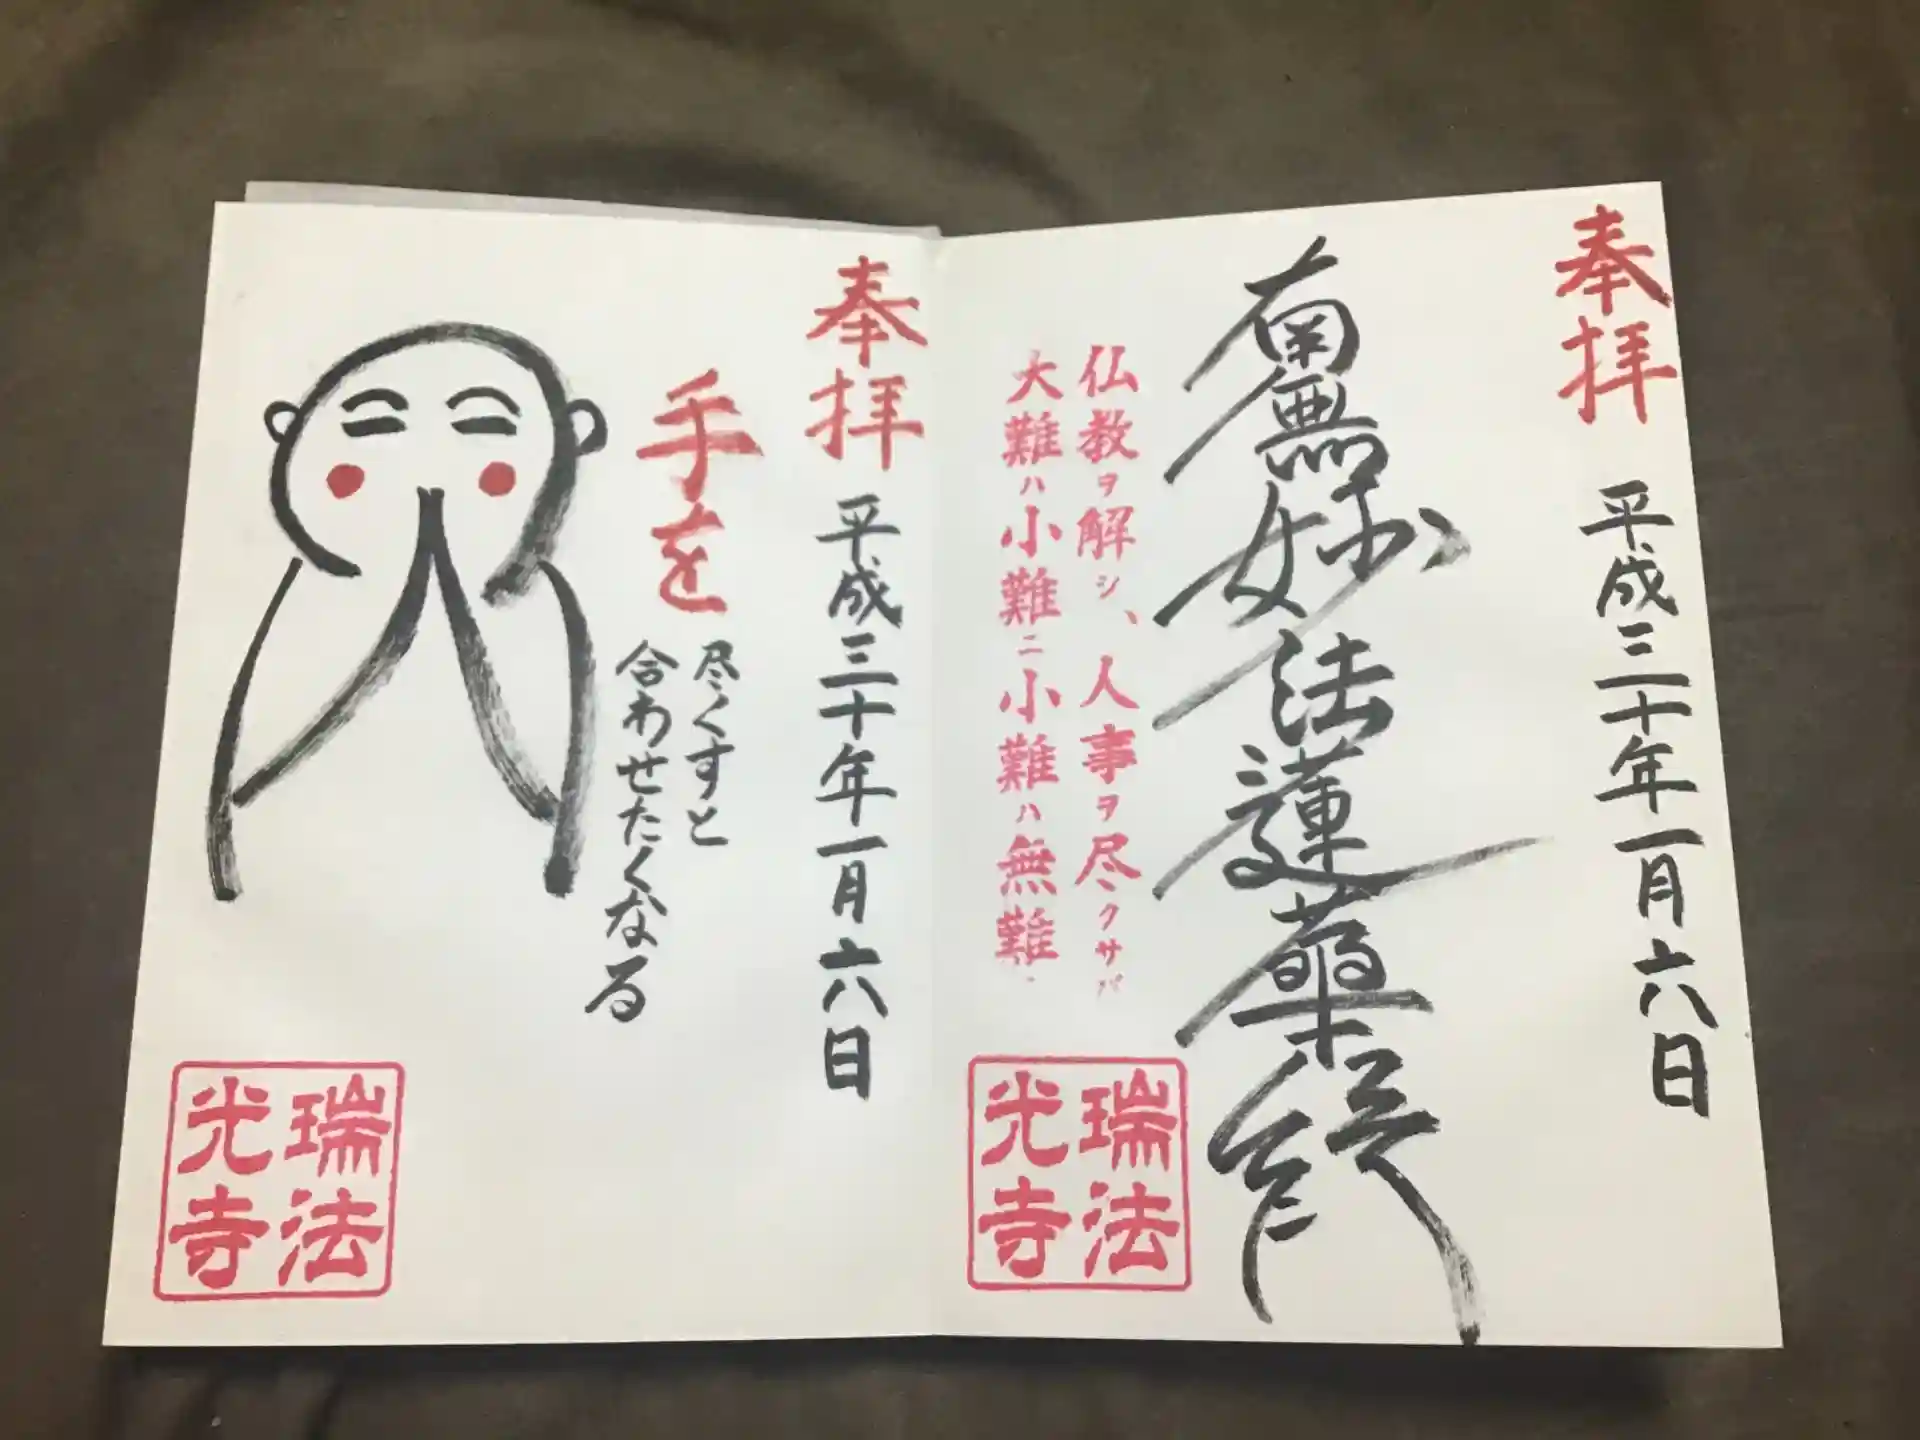 奉拝
平成三十年一月六日
南無妙法蓮華経
仏教ヲ解シ、人事ヲ尽クサバ
大難ハ小難ニ小難ハ無難
瑞法
光寺
奉拝
平成三十年一月六日
手を
尽くすと
合わせたくなる
瑞法
光寺